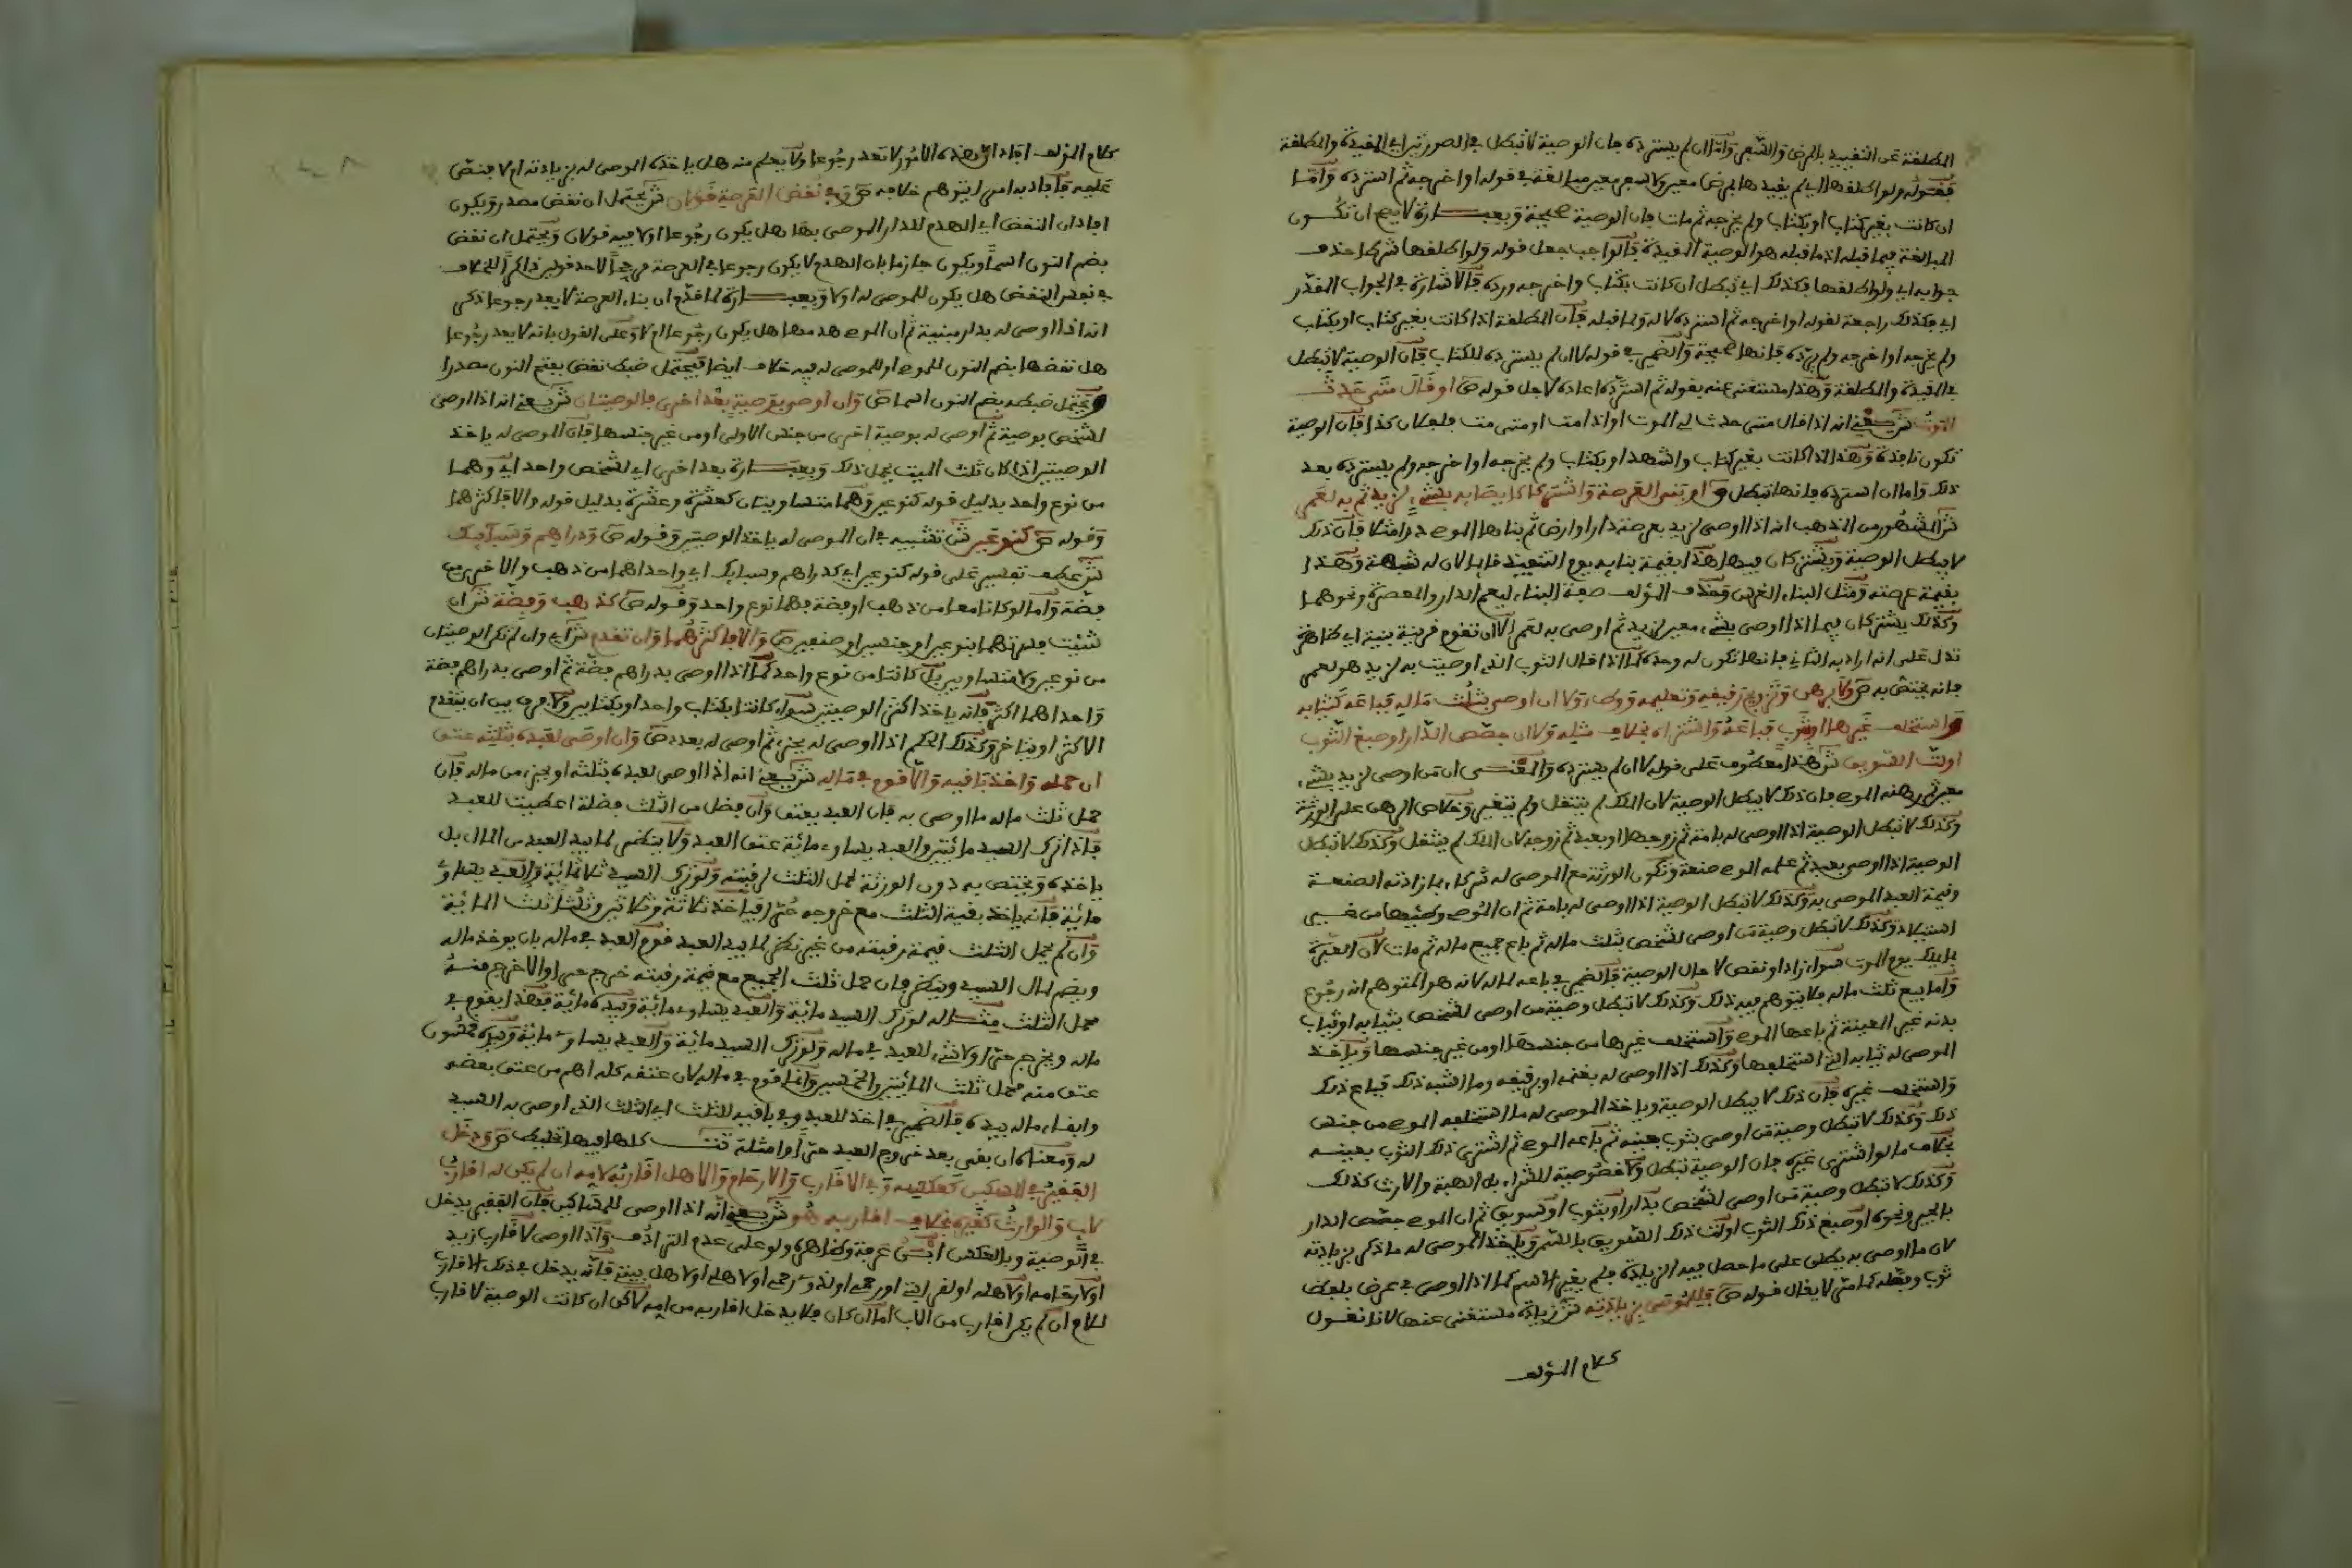 المطلقة عن التقييد بالمرض والسفر واما ان لم يسترده فان الوصية لا تبطل في الصورتين اي المقيدة والمطلقة
فقوله ولو اطلقها اي لم يقيدها بمرض معين ولا سفر معين مبالغة في قوله او اخرجه ثم استرده واما
ان كانت بغير كتاب او بكتاب ولم يخرجه ثم مات فان الوصية صحيحة وبعبارة لا يصح ان تكون
المبالغة فيما قبله اذ ما قبله هو الوصية المقيدة فالواجب جعل قوله ولو اطلقها شرطا حذف
جوابه اي ولو اطلقها فكذلك اي تبطل ان كانت بكتاب واخرجه ورده فالاشارة في الجواب المقدر
اي فكذلك راجعة لقوله او اخرجه ثم استرده لا له ولما قبله فان المطلقة اذا كانت بغير كتاب او بكتاب
ولم يخرجه او اخرجه ولم يرده فانها صحيحة والضمير في قوله لا ان لم يسترده للكتاب فان الوصية لا تبطل
في المقيدة والمطلقة وهذا مستغنى عنه بقوله ثم استرده اعاده لاجل قوله ص او قال متى حدث
الموت ش يعني انه اذا قال متى حدث لي الموت او اذا مت او متى مت فلفلان كذا فان الوصية
تكون نافذة وهذا اذا كانت بغير كتاب واشهد او بكتاب ولم يخرجه او اخرجه ولم يسترده بعد
ذلك واما ان استرده فانها تبطل ص او بنى العرصة واشتركا كايصائه بشيء لزيد ثم به لعمرو
ش المشهور من المذهب انه اذا اوصى لزيد بعرصة دار او ارض ثم بناها الموصي دارا مثلا فان ذلك
لا يبطل الوصية ويشتركان فيها هذا بقيمة بنائه يوم التنفيذ قائما لان له شبهة وهذا
بقيمة عرصته ومثل البناء الغرس وحذف المؤلف صفة البناء ليعم الدار والمعصرة ونحوهما
وكذلك يشتركان فيما اذا اوصى بشيء معين لزيد ثم اوصى به لعمرو الا ان تقوم قرينة بينة اي ظاهرة
تدل على انه اراد به الثاني فانها تكون له وحده كما اذا قال الثوب الذي اوصيت به لزيد هو لعمرو
فانه يختص به ص ولا برهن وتزويج رقيق وتعليمه ووطء ولا ان اوصى بثلث ماله فباعه كثيابه
واستخلف غيرها او بثوب فباعه ثم اشتراه بخلاف مثله ولا ان جصص الدار او صبغ الثوب
او لت السويق ش هذا معطوف على قوله لا ان لم يسترده والمعنى ان من اوصى لزيد بشيء
معين ثم رهنه الموصي فان ذلك لا يبطل الوصية لان الملك لم ينتقل ولم يتغير وخلاص الرهن على الورثة
وكذلك لا تبطل الوصية اذا اوصى له بامة ثم زوجها او بعبد ثم زوجه لان الملك لم ينتقل وكذلك لا تبطل
الوصية اذا اوصى بعبد ثم علمه الموصي صنعة وتكون الورثة مع الموصى له شركاء بما زادته الصنعة
وقيمة العبد الموصى به وكذلك لا تبطل الوصية اذا اوصى له بامة ثم ان الموصي وطئها من غير
استيلاد وكذلك لا تبطل وصية من اوصى لشخص بثلث ماله ثم باع جميع ماله ثم مات لان العبرة
بما يملك يوم الموت سواء زاد او نقص لا حال الوصية فالضمير في باعه لماله لانه هو المتوهم انه رجوع
واما بيع ثلث ماله فلا يتوهم فيه ذلك وكذلك لا تبطل وصية من اوصى لشخص بثيابه او ثياب
بدنه غير المعينة ثم باعها الموصي واستخلف غيرها من جنسها او من غير جنسها ويأخذ
الموصى له ثيابه التي استخلفها وكذلك اذا اوصى له بغنمه او برقيقه وما اشبه ذلك فباع ذلك
واستخلف غيره فان ذلك لا يبطل الوصية ويأخذ الموصى له ما استخلفه الموصي من جنس
ذلك وكذلك لا تبطل وصية من اوصى بثوب بعينه ثم باعه الموصي ثم اشترى ذلك الثوب بعينه
بخلاف ما لو اشترى غيره فان الوصية تبطل ولا خصوصية للشراء بل الهبة والارث كذلك
وكذلك لا تبطل وصية من اوصى لشخص بدار او بثوب او بسويق ثم ان الموصي جصص الدار
بالجير ونحوه او صبغ ذلك الثوب او لت ذلك السويق بالسمن ويأخذ الموصى له ما ذكر بزيادته
لان ما اوصى به يطلق على ما حصل فيه الزيادة فلم يتغير الاسم كما اذا اوصى في عرض بلعض
ثوب ونقله كما متى لا يقال قوله ص فللموصى بزيادته ش زيادة مستغنى عنها لانا نقول
كلام المؤلف
كلام المؤلف افاد ان هذه الامور لا تعد رجوعا ولا يعلم منه هل ياخذه الموصى له بزيادته ام لا فنص
عليه فافاد به امرا يتوهم خلافه ص وفي نقض العرصة قولان ش يحتمل ان نقض مصدر ويكون
افاد ان النقض اي الهدم للدار الموصى بها هل يكون رجوعا او لا فيه قولان ويحتمل ان نقض
بضم النون اسما ويكون جازما بان الهدم لا يكون رجوعا في العرصة مرجحا لاحد قولين ذاكرا للخلاف
في نفس النقض هل يكون للموصى له او لا وبعبارة لما قدم ان بناء العرصة لا يعد رجوعا ذكر
انه اذا اوصى له بدار مبنية ثم ان الموصي هدمها هل يكون رجوعا ام لا وعلى القول بانه لا يعد رجوعا
هل نقضها بضم النون للموصي او للموصى له فيه خلاف ايضا فيحتمل ضبط نقض بفتح النون مصدرا
ويحتمل ضبطه بضم النون اسما ص وان اوصى بوصية بعد اخرى فالوصيتان ش يعني انه اذا اوصى
لشخص بوصية ثم اوصى له بوصية اخرى من جنس الاولى او من غير جنسها فان الموصى له ياخذ
الوصيتين اذا كان ثلث الميت يحمل ذلك وبعبارة بعد اخرى اي لشخص واحد اي وهما
من نوع واحد بدليل قوله كنوعين وهما متساويتان كعشرة وعشرة بدليل قوله والا فاكثرهما
وقوله ص كنوعين ش تشبيه في ان الموصى له ياخذ الوصيتين وقوله ص ودراهم وسبائك
ش عطف تفسير على قوله كنوعين اي كدراهم وسبائك اي واحداهما من ذهب والاخرى من
فضة واما لو كانتا معا من ذهب او فضة فهما نوع واحد وقوله ص كذهب وفضة ش ان
شئت جعلتهما نوعين او جنسين او صنفين ص والا فاكثرهما وان تقدم ش اي وان لم تكن الوصيتان
من نوعين ولا متساويين بل كانتا من نوع واحد كما اذا اوصى بدراهم فضة ثم اوصى بدراهم فضة
واحداهما اكثر فانه ياخذ اكثر الوصيتين سواء كانتا بكتاب واحد او بكتابين ولا فرق بين ان يتقدم
الاكثر او يتاخر وكذلك الحكم اذا اوصى له بجزء ثم اوصى له بعدد ص وان اوصى لعبده بثلثه عتق
ان حمله واخذ باقيه والا قوم في ماله ش يعني انه اذا اوصى لعبده بثلثه او بجزء من ماله فان
حمل ثلث ماله ما اوصى به فان العبد يعتق وان فضل من الثلث فضلة اعطيت للعبد
فاذا ترك السيد مائتين والعبد يساوي مائة عتق العبد ولا ينظر لما بيد العبد من المال بل
ياخذه ويختص به دون الورثة لحمل الثلث لرقبته ولو ترك السيد ثلاثمائة والعبد يساوي
مائة فانه ياخذ بقية الثلث مع خروجه حرا فياخذ ثلاثة وثلاثين وثلث المائة
وان لم يحمل الثلث قيمة رقبته من غير نظر لما بيد العبد قوم العبد في ماله بان يوخذ ماله
ويضم لمال السيد وينظر فان حمل ثلث الجميع مع قيمة رقبته خرج حرا والا خرج منه
محمل الثلث مثاله لو ترك السيد مائة والعبد يساوي مائة وبيده مائة فهذا يقوم في
ماله ويخرج حرا ولا شيء للعبد في ماله ولو ترك السيد مائة والعبد يساوي مائة وبيده خمسون
عتق منه محمل ثلث المائتين والخمسين وانما قوم في ماله لان عتقه كله اهم من عتق بعضه
وابقاء ماله بيده فالضمير في اخذ للعبد وفي باقيه للثلث اي الثلث الذي اوصى به السيد
له ومعناه ان بقي بعد خروج العبد حرا او امثلة كلها فيها ص ودخل
الفقير في المسكين كعكسه وفي الاقارب والارحام والاهل اقاربه لامه ان لم يكن له اقارب
لاب والوارث كغيره بخلاف اقاربه هو ش يعني انه اذا اوصى للمساكين فان الفقير يدخل
في الوصية وبالعكس اي عرفا وظاهره ولو على عدم الترادف واذا اوصى لاقارب زيد
او لارحامه او لاهله او لذي رحمه او لاهلي او لاهل بيتي فانه يدخل في ذلك الاقارب
للام ان لم يكن اقارب من الاب اما ان كان فلا يدخل اقاربه من امه لكن ان كانت الوصية لاقارب